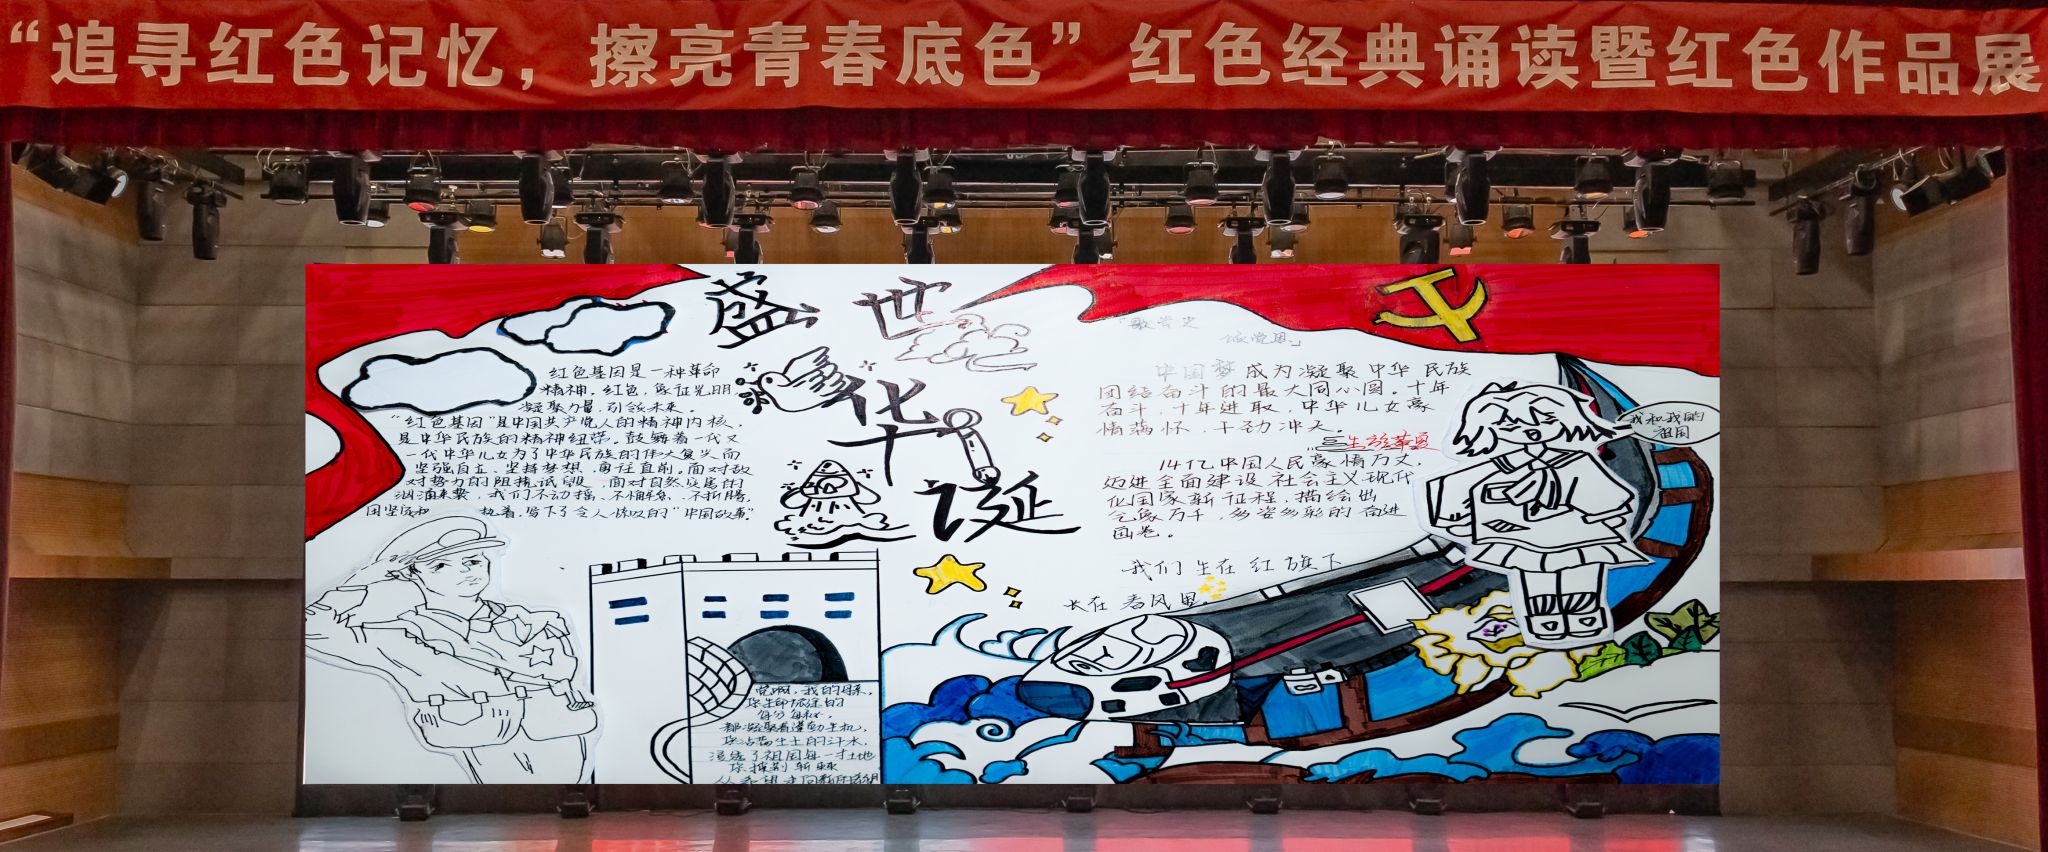 “追寻红色记忆，擦亮青春底色”红色经典诵读暨红色作品展
盛世
华
诞
红色基因是一种革命
精神。红色，象征光明，
凝聚力量，引领未来。
“红色基因”是中国共产党人的精神内核，
是中华民族的精神纽带。鼓舞着一代又
一代中华儿女为了中华民族的伟大复兴而
坚强自立、坚持梦想、勇往直前。面对敌
对势力的阻挠诋毁，面对自然灾害的
汹涌来袭，我们不动摇、不懈怠、不折腾，
执着，写下了令人惊叹的“中国故事”
党啊，我的母亲，
每分每秒，
都凝聚着
的汗水，
了祖国每一寸土地
「歌党史
颂党恩」
中国梦成为凝聚中华民族
团结奋斗的最大同心圆。十年
奋斗，十年进取，中华儿女豪
情满怀，干劲冲天。
14亿中国人民豪情万丈，
迈进全面建设社会主义现代
化国家新征程，描绘出
气象万千，多姿多彩的奋进
画卷。
我们生在红旗下
长在春风里。
我和我的
祖国